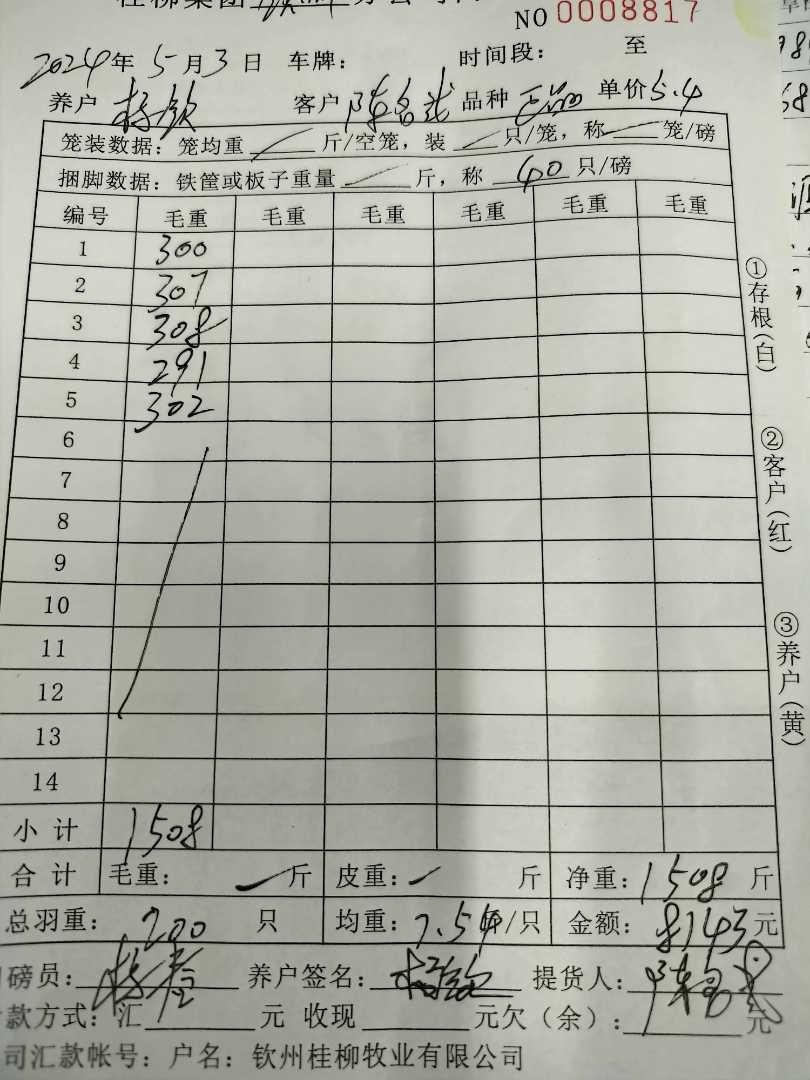 桂柳集团
NO 0008817
2024年 5月3日 车牌： 时间段： 至
养户 杨钦 客户 陈名武 品种 单价5.4
笼装数据：笼均重 斤/空笼，装 只/笼，称 笼/磅
捆脚数据：铁筐或板子重量 斤，称 40 只/磅
编号 毛重 毛重 毛重 毛重 毛重 毛重
1 300
2 307
3 308
4 291
5 302
6
7
8
9
10
11
12
13
14
小计 1508
合计 毛重： 斤 皮重： 斤 净重：1508 斤
总羽重： 200 只 均重：7.54/只 金额：8143元
磅员： 养户签名：杨钦 提货人：
款方式：汇 元 收现 元欠（余）： 元
司汇款帐号：户名：钦州桂柳牧业有限公司
①存根（白）
②客户（红）
③养户（黄）